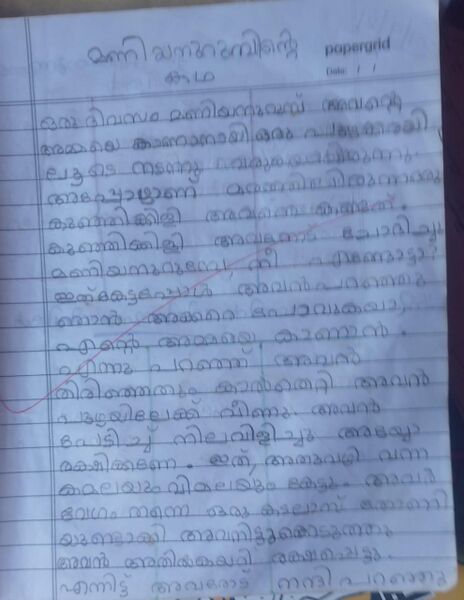 മണിയനുറുമ്പിന്റെ
കഥ
papergrid
Date: / /
ഒരു ദിവസം മണിയനുറുമ്പ് അവന്റെ
അമ്മയെ കാണാനായി ഒരു പുഴക്കരയി
ലൂടെ നടന്നു വരുകയായിരുന്നു.
അപ്പോഴാണ് മരത്തിലിരുന്ന ഒരു
കുഞ്ഞിക്കിളി അവനെ കണ്ടത്.
കുഞ്ഞിക്കിളി അവനോട് ചോദിച്ചു
മണിയനുറുമ്പേ, നീ എങ്ങോട്ടാ?
ഇത്കേട്ടപ്പോൾ അവൻ പറഞ്ഞു
ഞാൻ അക്കരെ പോവുകയാ,
എന്റെ അമ്മയെ കാണാൻ.
എന്നു പറഞ്ഞ് അവൻ
തിരിഞ്ഞതും കാൽതെറ്റി അവൻ
പുഴയിലേക്ക് വീണു. അവൻ
പേടിച്ച് നിലവിളിച്ചു അയ്യോ
രക്ഷിക്കണേ. ഇത്, അതുവഴി വന്ന
കമലയും വിമലയും കേട്ടു. അവർ
വേഗം തന്നെ ഒരു കടലാസ് തോണി
യുണ്ടാക്കി അവനിട്ടുകൊടുത്തു
അവൻ അതിൽകയറി രക്ഷപ്പെട്ടു.
എന്നിട്ട് അവരോട് നന്ദി പറഞ്ഞു